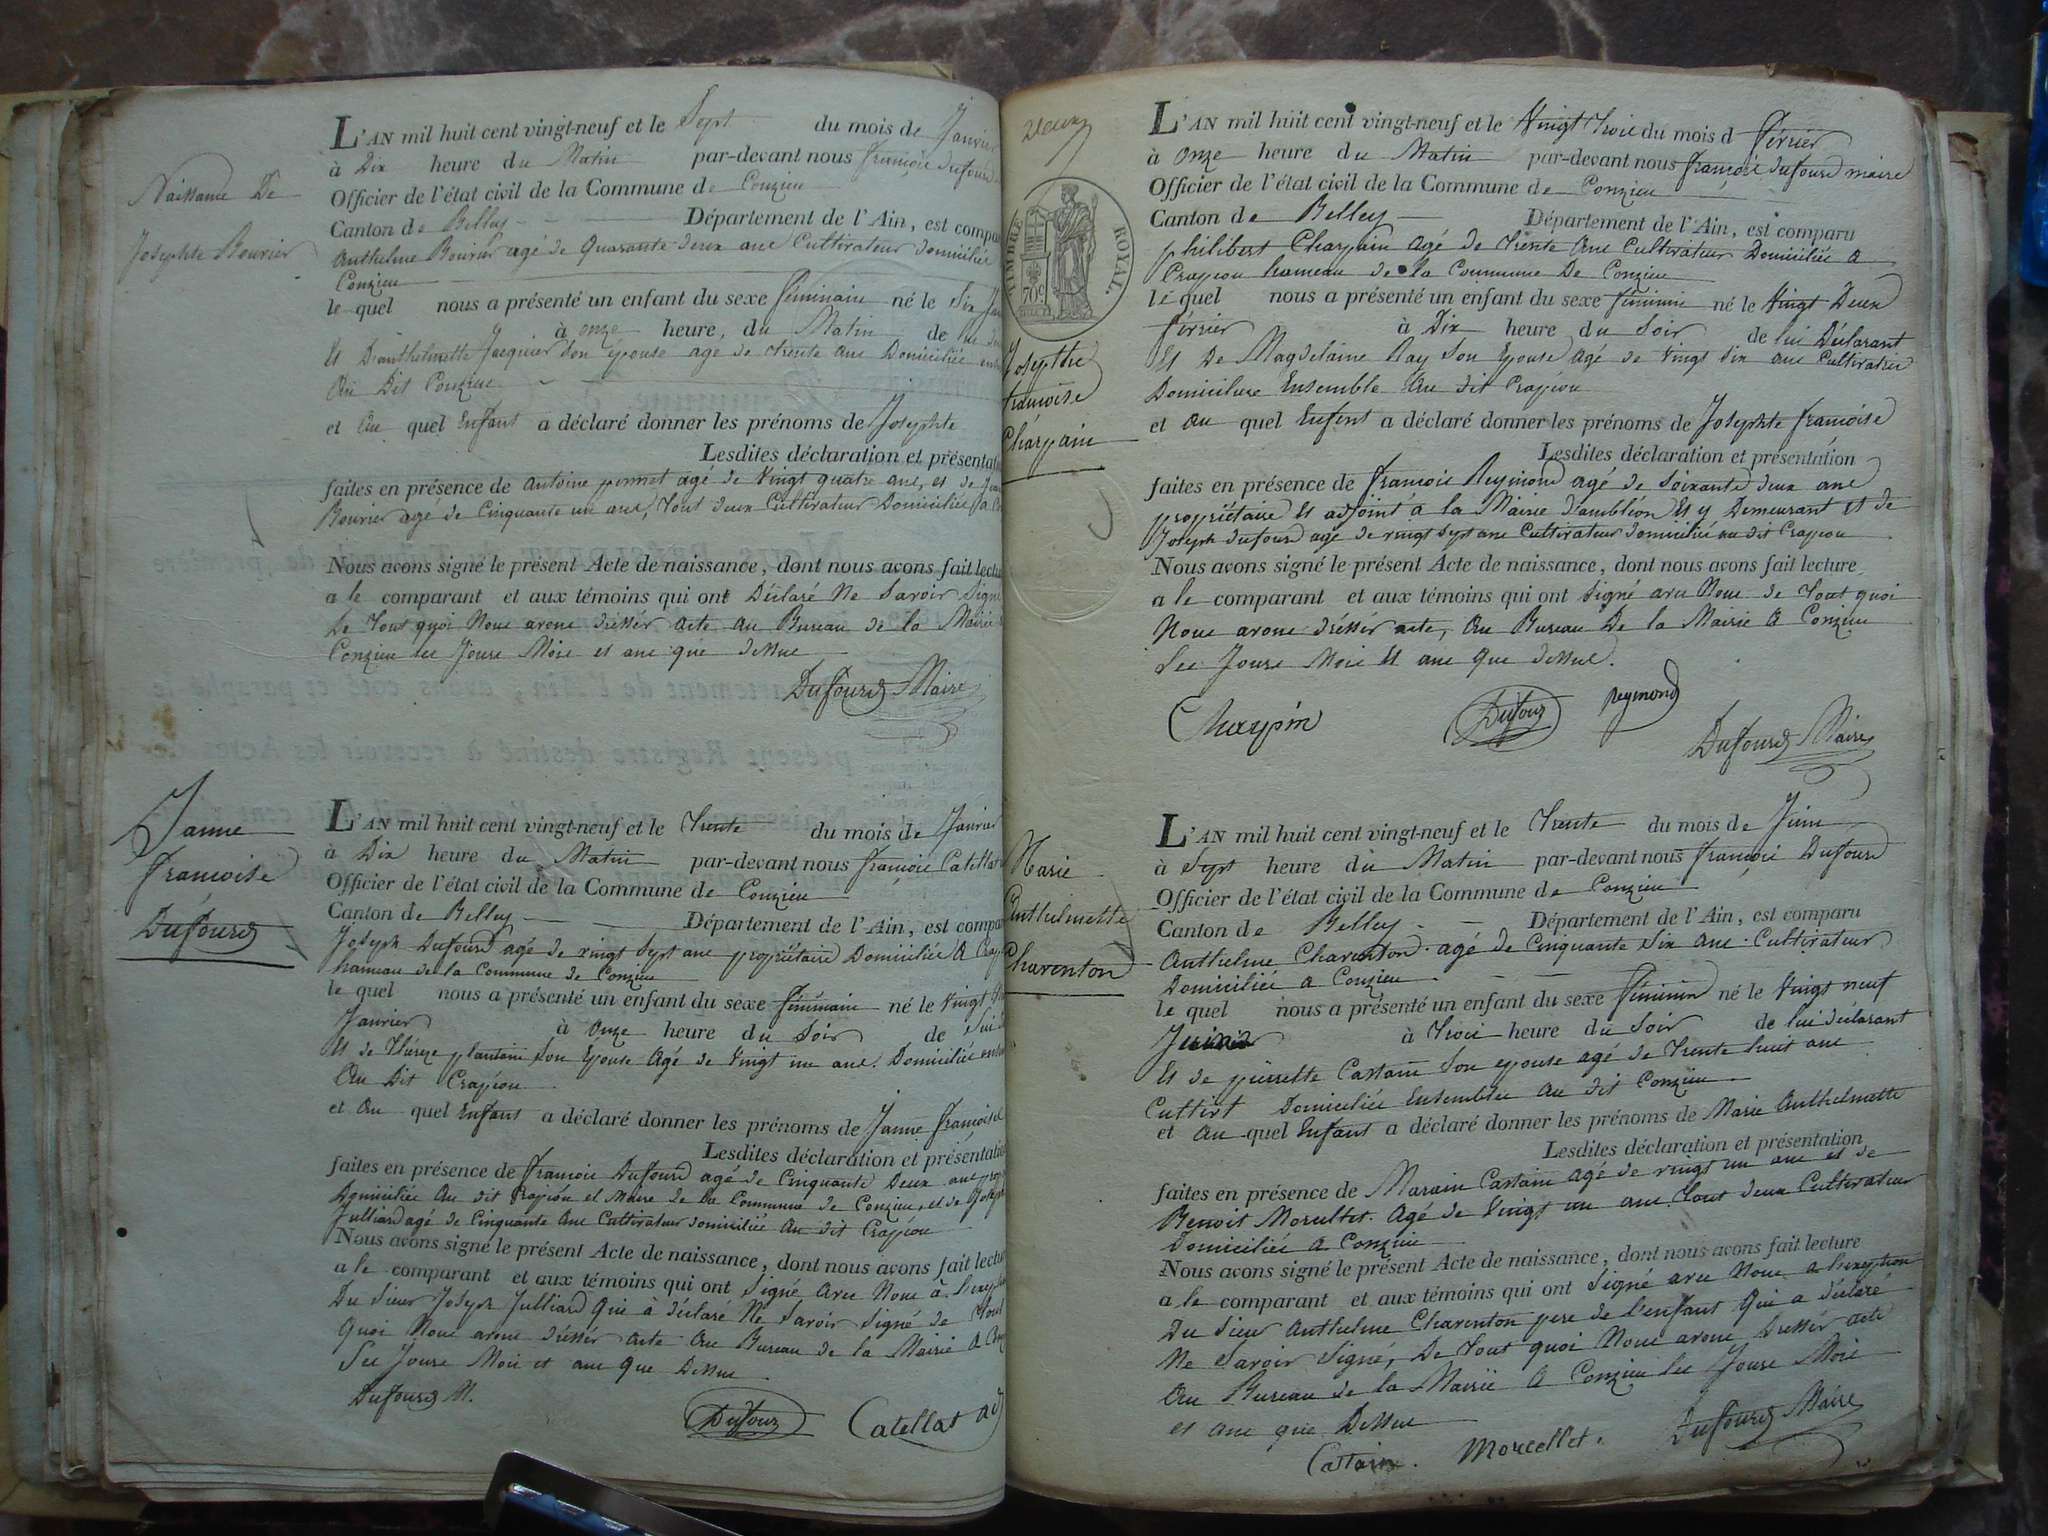 Naissance De
Josephte Bourier
L'AN mil huit cent vingt-neuf et le Sept du mois de Janvier
à Dix heure du Matin par-devant nous françois Dufourd
Officier de l'état civil de la Commune de Conzieu
Canton de Belley Département de l'Ain, est compa
Anthelme Bourier agé de Quarante deux ans Cultivateur domicilié
Conzieu
le quel nous a présenté un enfant du sexe féminain né le Six Jan
à onze heure, du Matin de lui
Et D'anthelmette Jacquier Son épouse agé de trente ans Domiciliée
Au Dit Conzieu
et Au quel Enfant a déclaré donner les prénoms de Josephte
Lesdites déclaration et présentati
faites en présence de Antoine pernet agé de Vingt quatre ans, et de
Bourier agé de Cinquante un ans, tout deux Cultivateur Domiciliée
Nous avons signé le présent Acte de naissance, dont nous avons fait lectu
a le comparant et aux témoins qui ont Déclaré Ne Savoir Signé
De tout quoi Nous avons drésser acte au Bureau de la Mairie
Conzieu les Jours Mois et ans que dessus
Dufourd Maire
Janne
françoise
Dufourd
L'AN mil huit cent vingt-neuf et le trente du mois de Janvier
à Dix heure du Matin par-devant nous françois Catellat
Officier de l'état civil de la Commune de Conzieu
Canton de Belley Département de l'Ain, est compar
Joseph Dufourd agé de vingt Sept ans propriétaire Domiciliée A
hameau de la Commune de Conzieu
le quel nous a présenté un enfant du sexe féminain né le Vingt
Janvier à onze heure du Soir de lui
Et de Thérèze plantin Son Epouse Agé de Vingt un ans. Domiciliée
Au Dit Crapéou
et Au quel Enfant a déclaré donner les prénoms de Janne françoise
Lesdites déclaration et présentatio
faites en présence de françois Dufourd agé de Cinquante Deux ans
Domiciliée Au dit Crapéou et Maire de la Commune de Conzieu, et de Joseph
Julliard agé de Cinquante Ans Cultivateur domiciliée Au dit Crapéou
Nous avons signé le présent Acte de naissance, dont nous avons fait lectur
a le comparant et aux témoins qui ont Signé Avec Nous à l'exception
Du Sieur Joseph Julliard Qui à déclaré Ne Savoir Signé de tout
Quoi Nous avons drésser Acte Au Bureau de la Mairie A
Les Jours Mois et ans Que Dessus
Dufourd M.
Dufour Catellat adj
Deux
TIMBRE ROYAL.
70c
Josephte
françoise
Charpain
L'AN mil huit cent vingt-neuf et le Vingt trois du mois d février
à onze heure du Matin par-devant nous françois dufourd maire
Officier de l'état civil de la Commune de Conzieu
Canton de Belley Département de l'Ain, est comparu
philibert Charpain Agé de trente Ans Cultivateur Domiciliée A
Crapéou hameau de la Commune De Conzieu
le quel nous a présenté un enfant du sexe féminin né le Vingt Deux
février à Dix heure du Soir de lui Déclarant
Et De Magdelaine Ray Son Epouse agé de Vingt Six ans Cultivatrice
Domiciliée Ensemble Au dit Crapéou
et au quel Enfant a déclaré donner les prénoms de Josephte françoise
Lesdites déclaration et présentation
faites en présence de françois Reymond agé de Soixante deux ans
propriétaire Et adjoint à la Mairie d'ambléon Et y Demeurant et de
Joseph dufourd agé de vingt Sept ans Cultivateur domiciliée au dit Crapéou
Nous avons signé le présent Acte de naissance, dont nous avons fait lecture
a le comparant et aux témoins qui ont Signé avec Nous de tout quoi
Nous avons drésser acte, Au Bureau De la Mairie A Conzieu
Les Jours Mois Et ans Que Dessus.
Charpin Dufour Reymond
Dufourd Maire
Marie
Anthelmette
Charenton
L'AN mil huit cent vingt-neuf et le trente du mois de Juin
à Sept heure du Matin par-devant nous françois Dufourd
Officier de l'état civil de la Commune de Conzieu
Canton de Belley Département de l'Ain, est comparu
Anthelme Charenton agé de Cinquante Six ans Cultivateur
Domiciliée A Conzieu
le quel nous a présenté un enfant du sexe féminin né le Vingt neuf
Juin à trois heure du Soir de lui déclarant
Et de pierrette Castain Son epouse agé de trente huit ans
Cultivt Domiciliée Ensemblée Au dit Conzieu
et Au quel Enfant a déclaré donner les prénoms de Marie Anthelmette
Lesdites déclaration et présentation
faites en présence de Marain Castain agé de vingt un ans et de
Benoit Morcellet. Agé de Vingt un ans tout deux Cultivateur
Domiciliée A Conzieu
Nous avons signé le présent Acte de naissance, dont nous avons fait lecture
a le comparant et aux témoins qui ont Signé avec Nous a l'exception
Du Sieur Anthelme Charenton pere de l'enfant Qui a déclaré
Ne Savoir Signé, De tout quoi Nous avons Drésser acte
Au Bureau de la Mairie A Conzieu les Jours Mois
et Ans que Dessus
Castain. Morcellet. Dufourd Maire